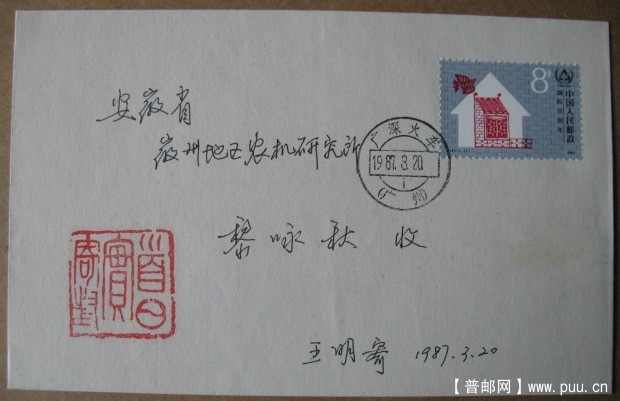 8分
中国人民邮政
国际住房年
广深火车
1987.3.20
1
(广州)
安徽省
徽州地区农机研究所
黎咏秋 收
首日
實
寄封
王明寄 1987.3.20
【普邮网】www.puu.cn